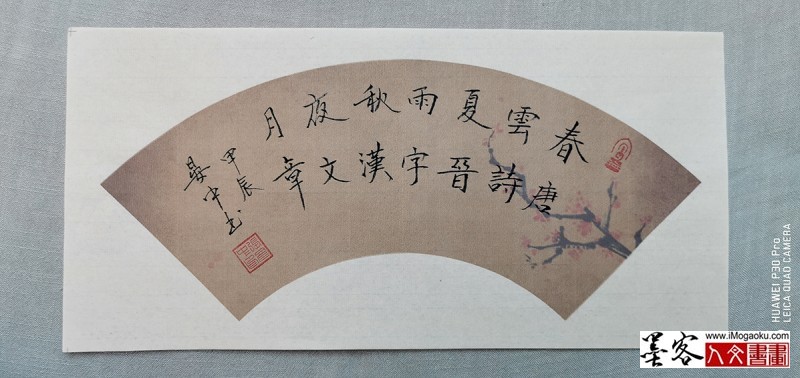 春雲夏雨秋夜月
唐詩晉字漢文章
甲辰
中书
HUAWEI P30 Pro
LEICA QUAD CAMERA
www.iMogaoku.com
墨客人文書畫